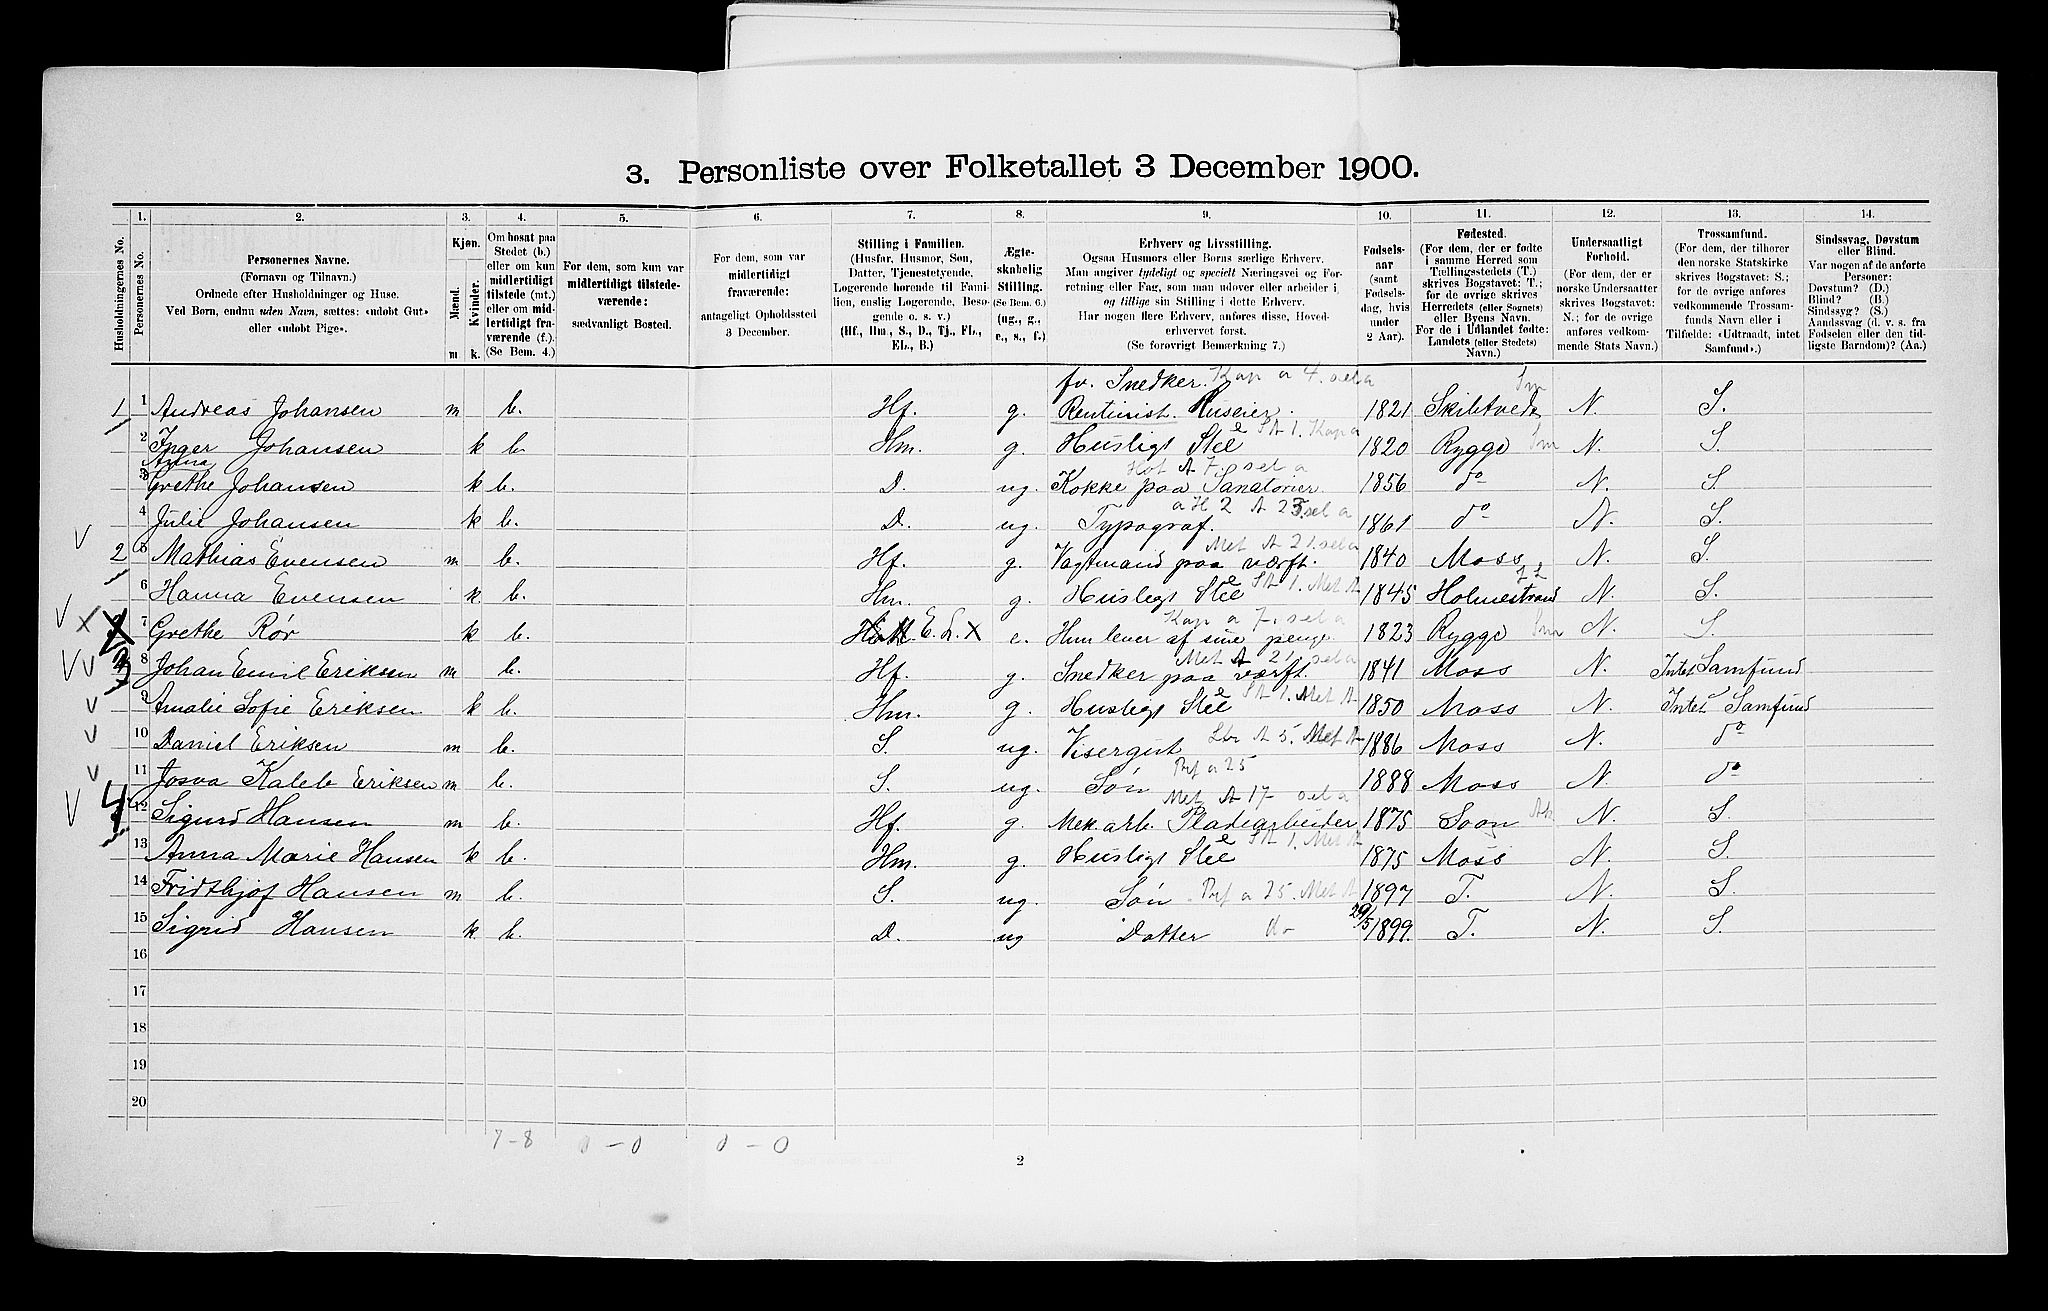 3. Personliste over Folketallet 3 December 1900.
1. 2. 3. 4. 5. 6. 7. 8. 9. 10. 11. 12. 13. 14.
Husholdningernes No.
Personernes No.
Personernes Navne.
(Fornavn og Tilnavn.)
Ordnede efter Husholdninger og Huse.
Ved Børn, endnu uden Navn, sættes: «udøbt Gut»
eller «udøbt Pige».
Kjøn.
Mænd. Kvinder.
m k.
Om bosat paa
Stedet (b.)
eller om kun
midlertidigt
tilstede (mt.)
eller om mid-
lertidigt fra-
værende (f.)
(Se Bem. 4.)
For dem, som kun var
midlertidigt tilstede-
værende:
sædvanligt Bosted.
For dem, som var
midlertidigt
fraværende:
antageligt Opholdssted
3 December.
Stilling i Familien.
(Husfar, Husmor, Søn,
Datter, Tjenestetyende,
Løgerende hørende til Fami-
lien, enslig Løgerende, Besø-
gende o. s. v.)
(Hf., Hm., S., D., Tj., FL.,
EL., B.)
Ægte-
skabelig
Stilling.
(Se Bem. 6.)
(ug., g.,
e., s., f.)
Erhverv og Livsstilling.
Ogsaa Husmors eller Børns særlige Erhverv.
Man angiver tydeligt og specielt Næringsvei og For-
retning eller Fag, som man udøver eller arbeider i,
og tillige sin Stilling i dette Erhverv.
Har nogen flere Erhverv, anføres disse, Hoved-
erhvervet først.
(Se forøvrigt Bemærkning 7.)
Fødsels-
aar
(samt
Fødsels-
dag, hvis
under
2 Aar).
Fødested.
(For dem, der er fødte
i samme Herred som
Tællingsstedets (T.)
skrives Bogstavet: T.;
for de øvrige skrives
Herredets (eller Sognets)
eller Byens Navn.
For de i Udlandet fødte:
Landets (eller Stedets)
Navn.)
Undersaatligt
Forhold.
(For dem, der er
norske Undersaatter
skrives Bogstavet:
N.; for de øvrige
anføres vedkom-
mende Stats Navn.)
Trossamfund.
(For dem, der tilhører
den norske Statskirke
skrives Bogstavet: S.;
for de øvrige anføres
vedkommende Trossam-
funds Navn eller i
Tilfælde: «Udtraadt, intet
Samfund».)
Sindssvag, Døvstum
eller Blind.
Var nogen af de anførte
Personer:
Døvstum? (D.)
Blind? (B.)
Sindssyg? (S.)
Aandssvag (d. v. s. fra
Fødselen eller den tid-
ligste Barndom)? (Aa.)
fv. Snedker. Kap a 4. sel a
1 1 Andreas Johansen m b. Hf. g. Rentinist. Huseier. 1821 Skibtvedt Sm N. S.
2 Inger Johansen k b. Hm. g. Husligt Stel St 1. Kap a 1820 Rygge Sm N. S.
Anna Hot A 7. sel a
3 Grethe Johansen k b. D. ug. Kokke paa Sanatorier. 1856 do N. S.
4 Julie Johansen k b. D. ug. Typograf. 1861 do N. S.
2 5 Mathias Evensen m b. Hf. g. Vagtmand paa værft. Met A 21. sel a 1840 Moss N. S.
6 Hanna Evensen k b. Hm. g. Husligt Stel St 1. Met A 1845 Holmestrand N. S.
7 Grethe Rör k b. E. L. X e. Hun lever af sine penge Kap a 7. sel a 1823 Rygge Sm N. S.
3 8 Johan Emil Eriksen m b. Hf. g. Snedker paa værft. Met A 21. sel a 1841 Moss N. Intet Samfund
9 Amalie Sofie Eriksen k b. Hm. g. Husligt Stel St 1. Met A 1850 Moss N. Intet Samfund
10 Daniel Eriksen m b. S. ug. Visergut A 5. Met A 1886 Moss N. do
11 Josva Kaleb Eriksen m b. S. ug. Søn a 25 1888 Moss N. do
4 12 Sigurd Hansen m b. Hf. g. Mek. arb. Pladearbeider Met A 17 sel a 1875 Soon N. S.
13 Anna Marie Hansen k b. Hm. g. Husligt Stel St 1. Met A 1875 Moss N. S.
14 Fridthjof Hansen m b. S. ug. Søn a 25. Met A 1897 T. N. S.
15 Sigrid Hansen k b. D. ug Datter do 29/5 1899. T. N. S.
16
17
18
19
20
7 - 8 0 - 0 0 - 0
2